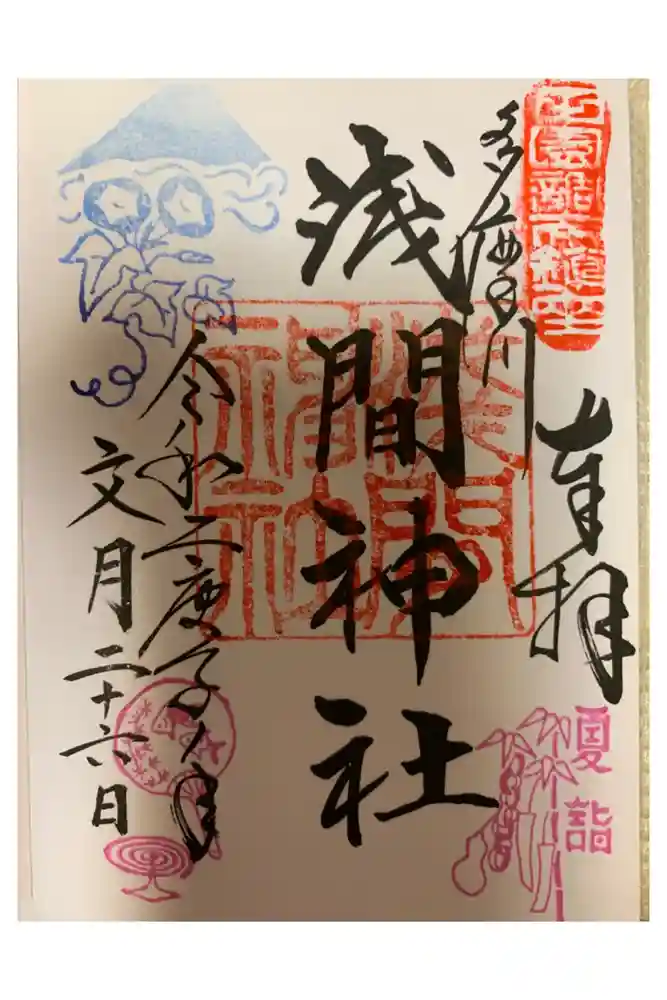 奉拝
多摩川
浅間神社
令和二庚子ノ年
文月二十六日
夏詣